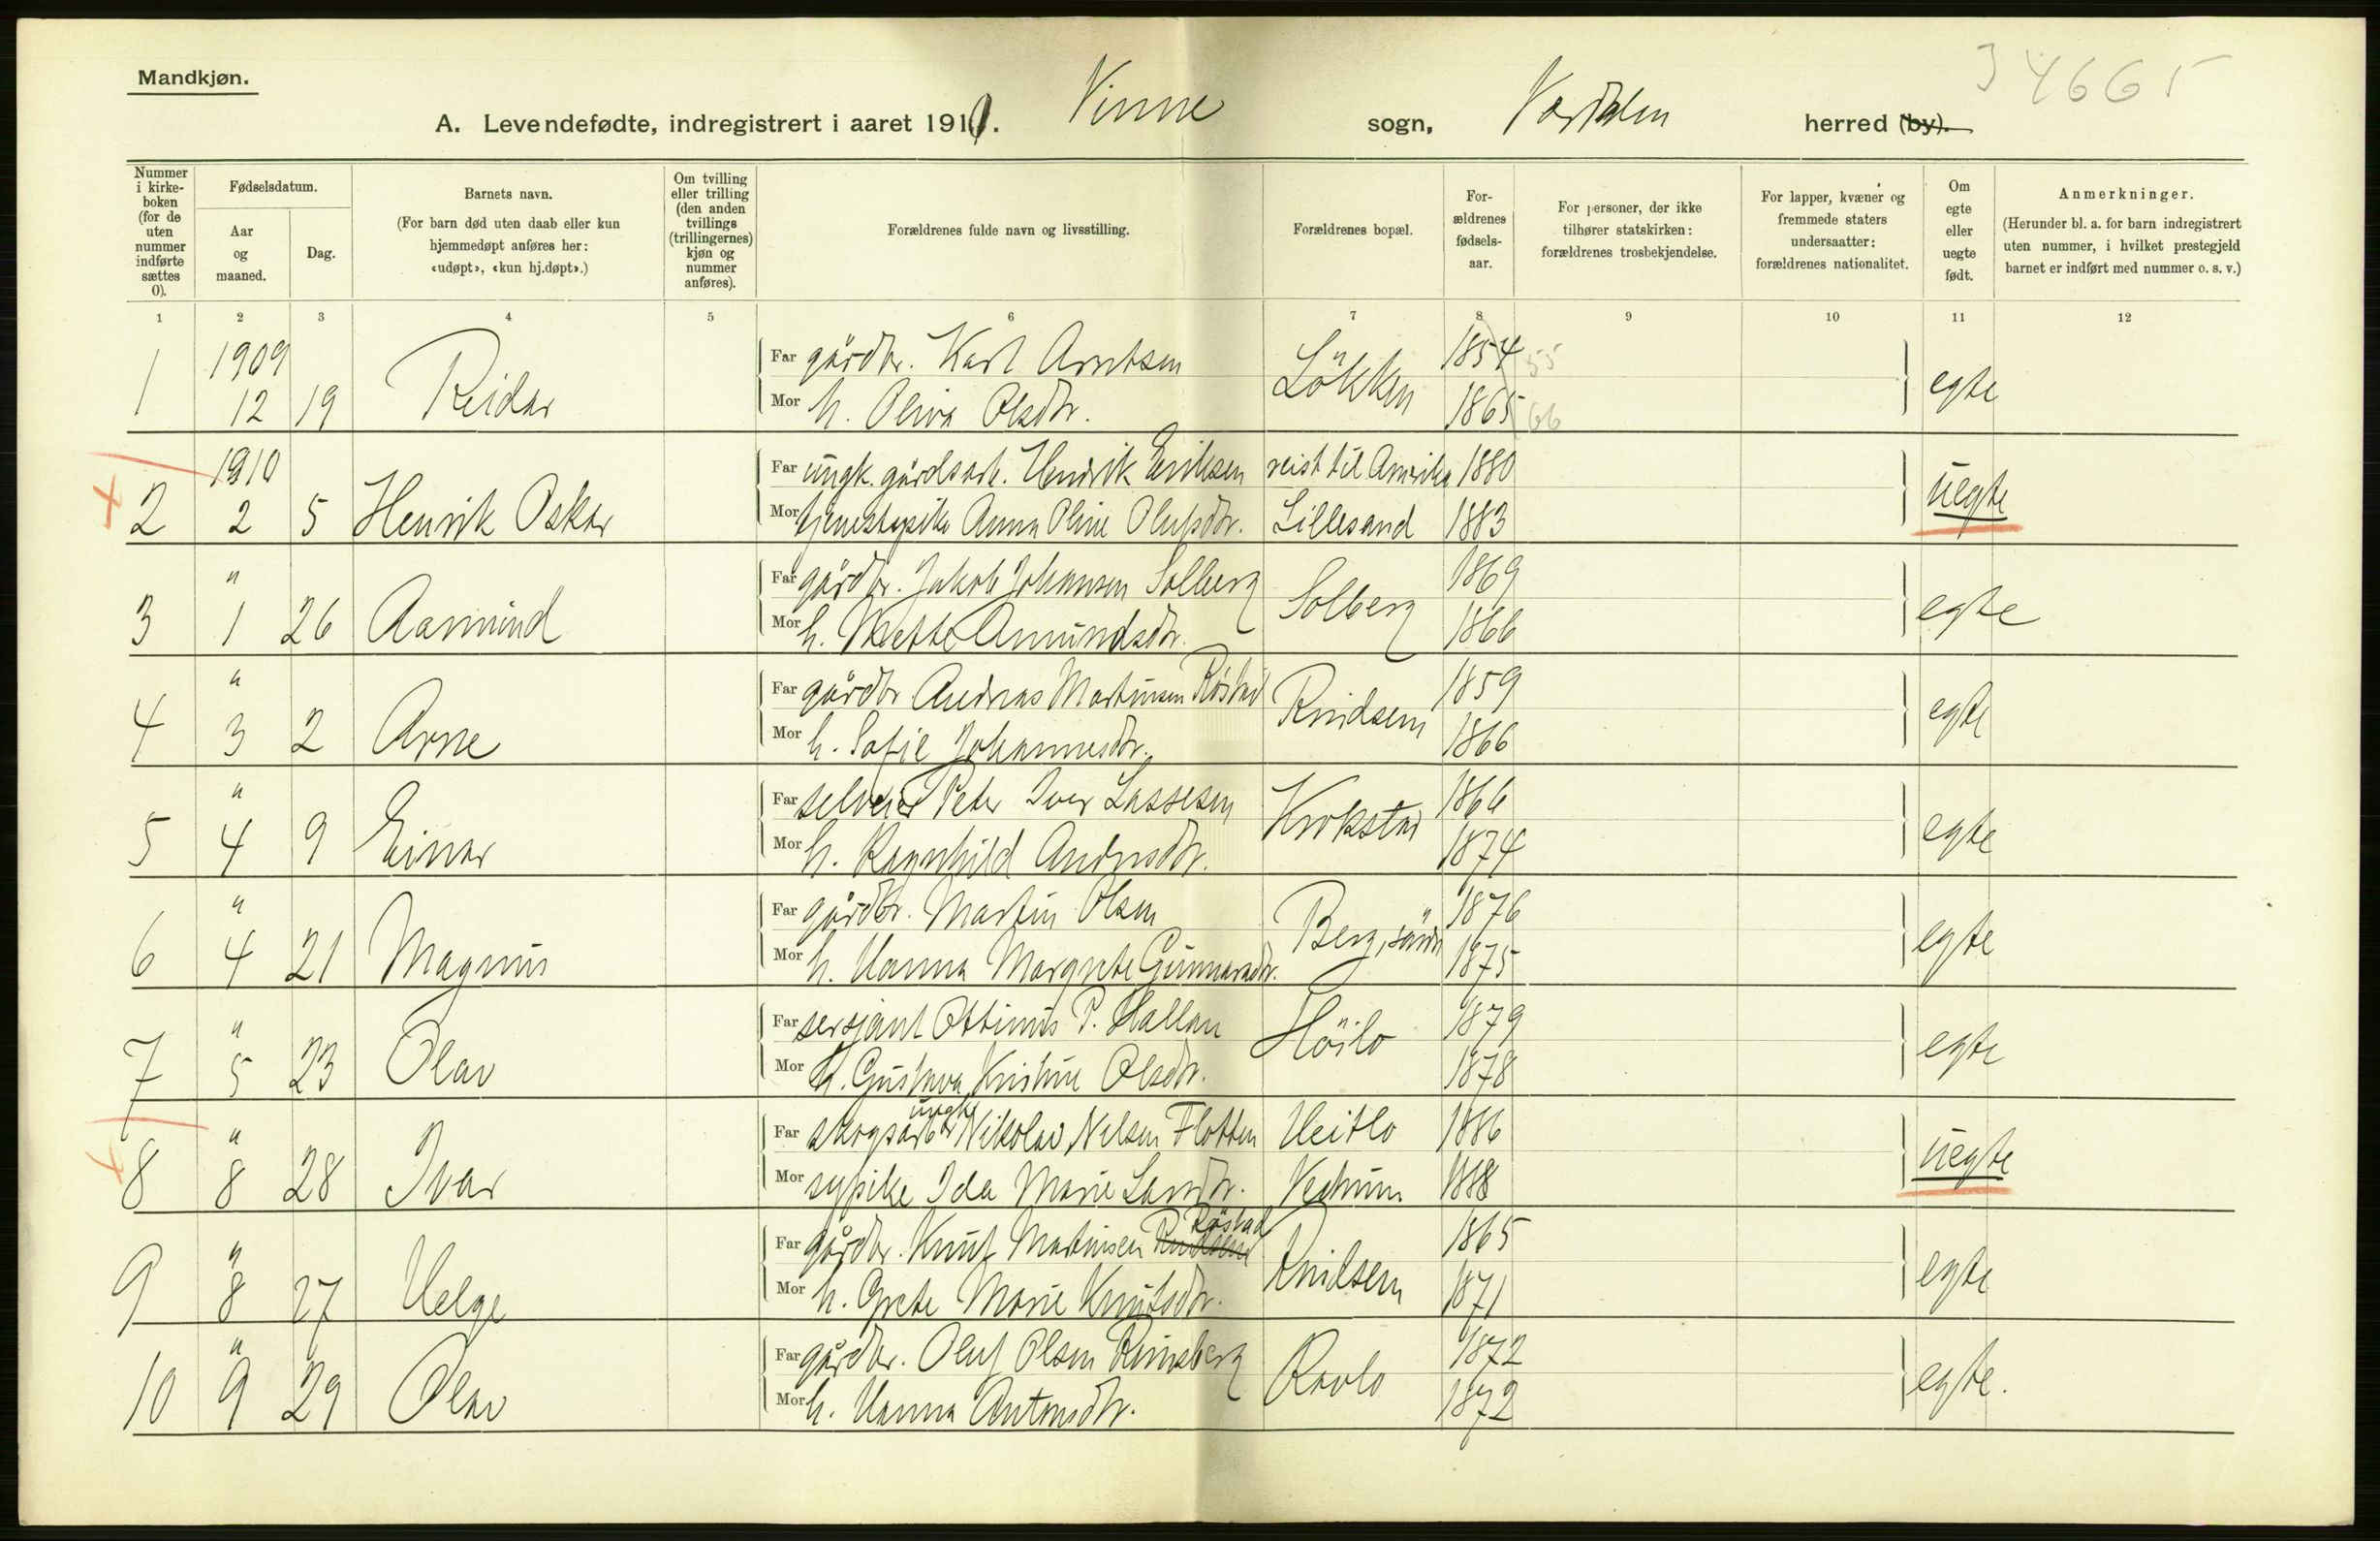 Mandkjøn.
34665
A. Levendefødte, indregistrert i aaret 1910. Vinne sogn, Værdalen herred (by).
Nummer i kirke-boken (for de uten nummer indførte sættes 0).
Fødselsdatum.
Aar og maaned.
Dag.
Barnets navn.
(For barn død uten daab eller kun hjemmedøpt anføres her: «udøpt», «kun hj.døpt».)
Om tvilling eller trilling (den anden tvillings (trillingernes) kjøn og nummer anføres).
Forældrenes fulde navn og livsstilling.
Forældrenes bopæl.
For-ældrenes fødsels-aar.
For personer, der ikke tilhører statskirken: forældrenes trosbekjendelse.
For lapper, kvæner og fremmede staters undersaatter: forældrenes nationalitet.
Om egte eller uegte født.
Anmerkninger.
(Herunder bl. a. for barn indregistrert uten nummer, i hvilket prestegjeld barnet er indført med nummer o. s. v.)
1 2 3 4 5 6 7 8 9 10 11 12
1 1909 12 19 Reidar
Far gårdbr. Karl Arntsen Lökken 1854 55
Mor h. Oliva Olsdtr. 1865 66 egte
2 1910 2 5 Henrik Oskar
Far ungk. gårdsarb. Henrik Eriksen reist til Amerika 1880
Mor tjenestepike Anna Oline Olufsdtr. Lillesand 1883 uegte
3 " 1 26 Aamund
Far gårdbr. Jakob Johansen Solberg Solberg 1869
Mor h. Mette Amundsdtr. 1866 egte
4 " 3 2 Arne
Far gårdbr Andreas Martinsen Röstad Knidsem 1859
Mor h. Sofie Johannesdtr. 1866 egte
5 " 4 9 Einar
Far selveier Peter Iver Lassesen Krokstad 1866
Mor h. Ragnhild Andersdtr. 1874 egte
6 " 4 21 Magnus
Far gårdbr. Martin Olsen Berg, søndr 1876
Mor h. Hanna Margrete Gunnarsdtr. 1875 egte
7 " 5 23 Olav
Far sersjant Ottinius P. Hallan Höilo 1879
Mor h. Gustava Kristine Olsdtr. 1878 egte
8 " 8 28 Ivar
Far skogsarb ungk Nikolai Nelsen Flotten Heitlo 1886
Mor sypike Ida Marie Larsdtr. Vestrum 1888 uegte
9 " 8 27 Helge
Far gårdbr. Knut Martinsen Röstad Knidsem 1865
Mor h. Grete Marie Knutsdtr. 1871 egte
10 " 9 29 Olav
Far gårdbr. Oluf Olsen Rinsberg Ravlo 1872
Mor h. Hanna Antonsdtr. 1872 egte.